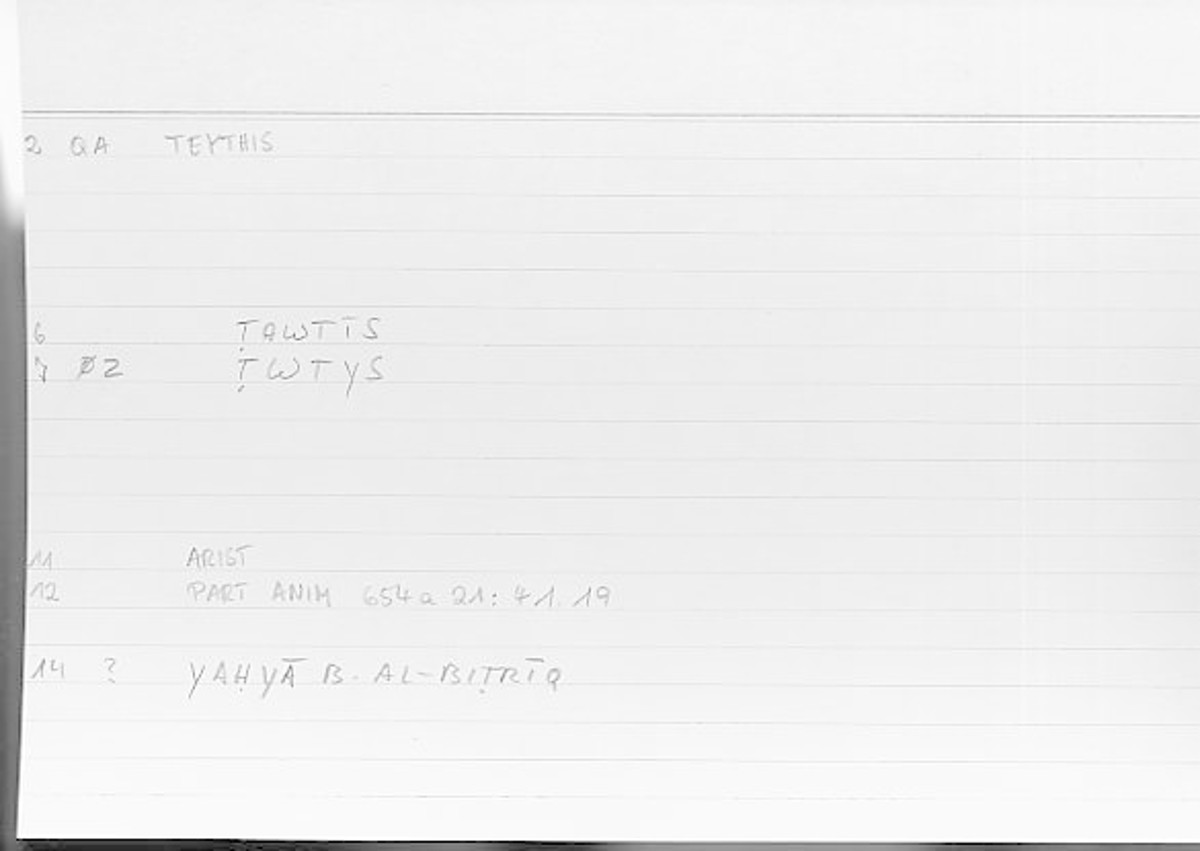 2 QA TEYTHIS
6 ṬAWTĪS
7 ØZ ṬWTYS
11 ARIST
12 PART ANIM 654a 21: 41.19
14 ? YAḤYĀ B. AL-BIṬRĪQ